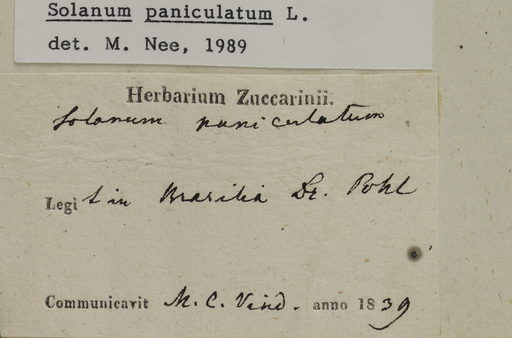 Solanum paniculatum L.
det. M. Nee, 1989
Herbarium Zuccarinii.
Solanum paniculatum
Legit in Brasilia Dr. Pohl
Communicavit M. C. Vind. anno 1839